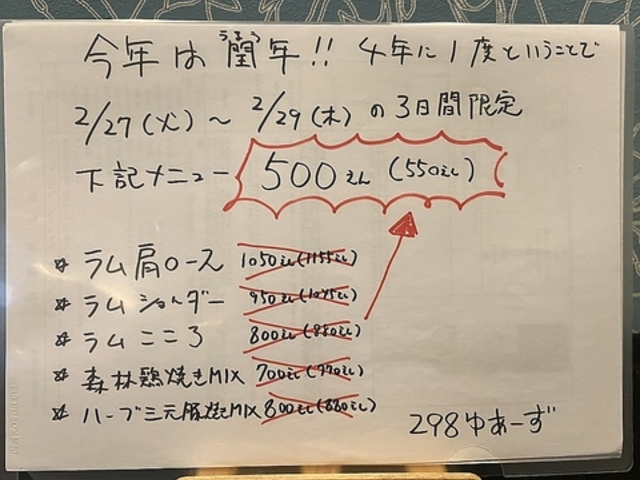 今年は閏年!! 4年に1度ということで
うるう
2/27(火)～2/29(木)の3日間限定
下記メニュー 500えん(550えん)
ラム肩ロース 1050えん(1155えん)
ラムショルダー 950えん(1045えん)
ラムこころ 800えん(880えん)
森林鶏焼きMIX 700えん(770えん)
ハーブ三元豚焼きMIX 800えん(880えん)
298ゆあーず